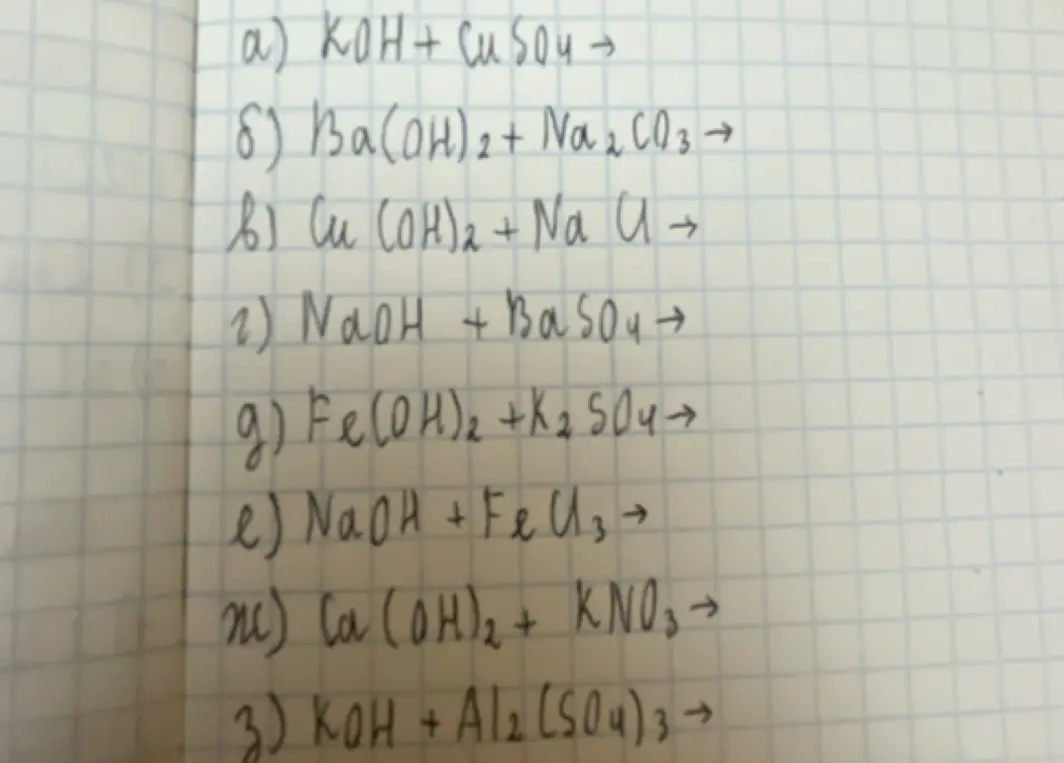 а) KOH + CuSO4 →
б) Ba(OH)2 + Na2CO3 →
в) Cu(OH)2 + NaCl →
г) NaOH + BaSO4 →
д) Fe(OH)2 + K2SO4 →
е) NaOH + FeCl3 →
ж) Ca(OH)2 + KNO3 →
з) KOH + Al2(SO4)3 →